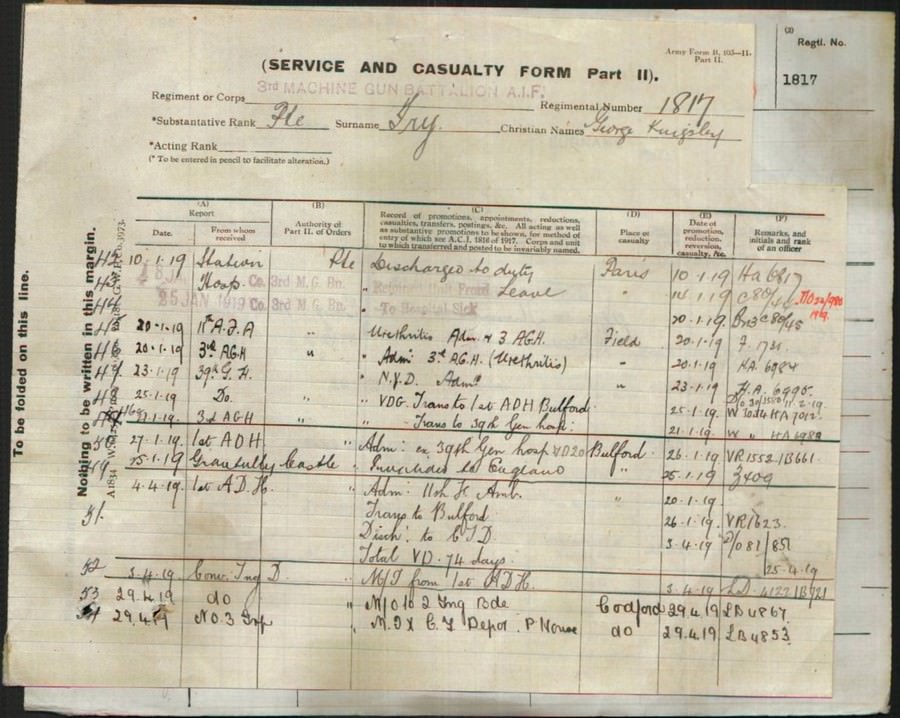 (2)
Regtl. No.
1817
Army Form B. 103—II.
Part II.
(SERVICE AND CASUALTY FORM Part II).
3rd MACHINE GUN BATTALION A.I.F.
Regiment or Corps
Regimental Number 1817
*Substantative Rank Pte Surname Try. Christian Names George Kingsley
*Acting Rank
(* To be entered in pencil to facilitate alteration.)
To be folded on this line.
Nothing to be written in this margin.
(A) Report
Date.
From whom received
(B)
Authority of Part II. of Orders
(C)
Record of promotions, appointments, reductions,
casualties, transfers, postings, &c. All acting as well
as substantive promotions to be shown, for method of
entry of which see A.C.I. 1816 of 1917. Corps and unit
to which transferred and posted to be invariably named.
(D)
Place of casualty
(E)
Date of promotion, reduction, reversion, casualty, &c.
(F)
Remarks, and initials and rank of an officer
10.1.19 Station Pte Discharged to duty Paris 10.1.19
Hosp. Co. 3rd M. G. Bn. Rejoined Unit From Leave " 14.1.19
25 JAN 1919 Co. 3rd M. G. Bn. To Hospital Sick 20.1.19
20.1.19 11th A.F.A " Urethritis Adm. & 3 AGH. Field 20.1.19
20.1.19 3rd AGH " " Adm: 3rd A.G.H. (Urethritis) " 20.1.19 HA. 6984
23.1.19 39th G.H. " N.Y.D. Adm. " 23.1.19 H.A. 6995.
25.1.19 Do. " " VDG. Trans to 1st ADH Bulford. 25.1.19 W 1044 HA 7012
21.1.19 3rd AGH " " Trans to 39th Gen hosp: 21.1.19 W " HA 6989
50 27.1.19 1st ADH Adm: ex 39th Gen hosp VD20 Bulford 26.1.19 VR1552/B661.
49 25.1.19 Grantully Castle " Invalided to England " 25.1.19 3409
4.4.19. 1st A.D.H. " Adm: 11th F. Amb. " 20.1.19
51. Trans to Bulford 26.1.19. VR1623.
Disch: to C.T.D. 3.4.19 /081/851
Total VD. 74 days. 25.4.19
52 3.4.19 Conv: Tng D. " M/I from 1st A.D.H. 3.4.19 LD. 4122/B721
53 29.4.19 do " M/O to 2 Tng Bde Codford 29.4.19 LB4867
54 29.4.19 No. 3 Grp " M.I. x C.T. Depot. P House do 29.4.19 LB4853.